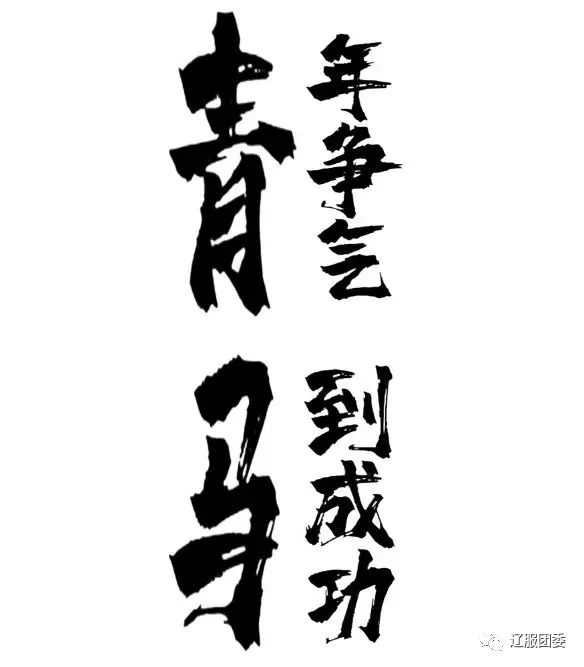 青年争气
马到成功
辽服团委